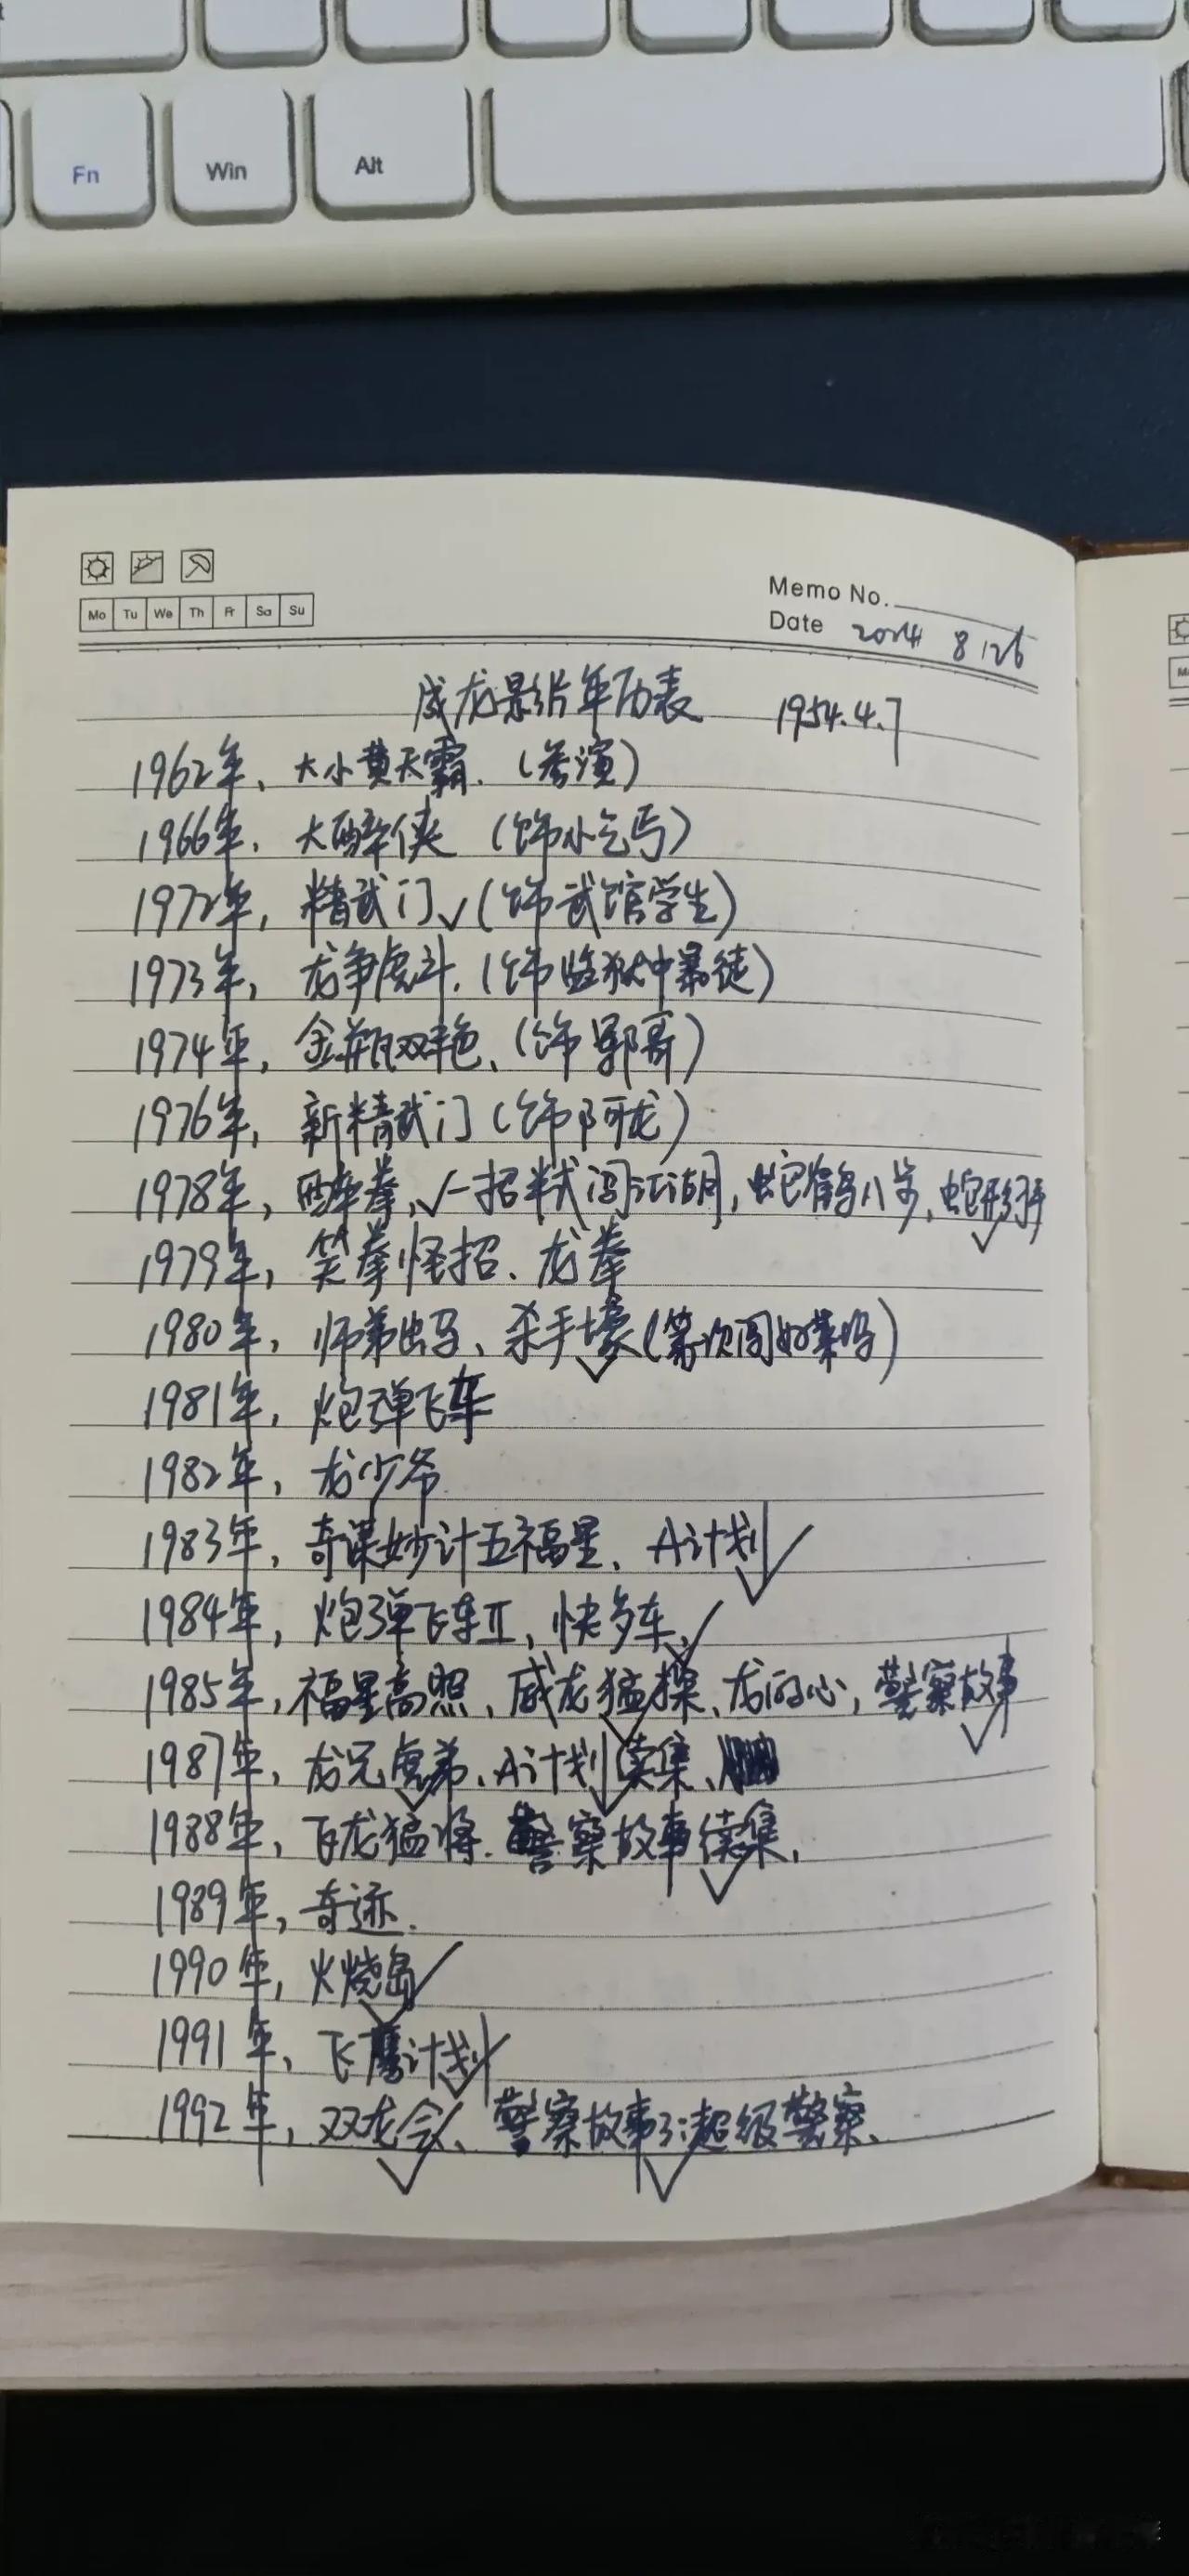 Fn Win Alt
Mo Tu We Th Fr Sa Su
Memo No.
Date 2024 8/26
成龙影片年历表 1954.4.7
1962年、大小黄天霸.(参演)
1966年.大醉侠(饰小乞丐)
1972年,精武门√(饰武馆学生)
1973年,龙争虎斗.(饰监狱中暴徒)
1974年,金瓶双艳、(饰郓哥)
1976年,新精武门(饰阿龙)
1978年,醉拳、√一招半式闯江湖,蛇鹤八步,蛇形刁手√
1979年,笑拳怪招、龙拳
1980年,师弟出马、杀手壕√(第次闯好莱坞)
1981年,炮弹飞车
1982年,龙少爷
1983年,奇谋妙计五福星、A计划√
1984年,炮弹飞车II,快多车√
1985年,福星高照、威龙猛探√、龙的心,警察故事√
1987年,龙兄虎弟√、A计划续集√、
1988年,飞龙猛将.警察故事续集√.
1989年,奇迹.
1990年,火烧岛√
1991年、飞鹰计划√
1992年,双龙会√、警察故事3:超级警察√、